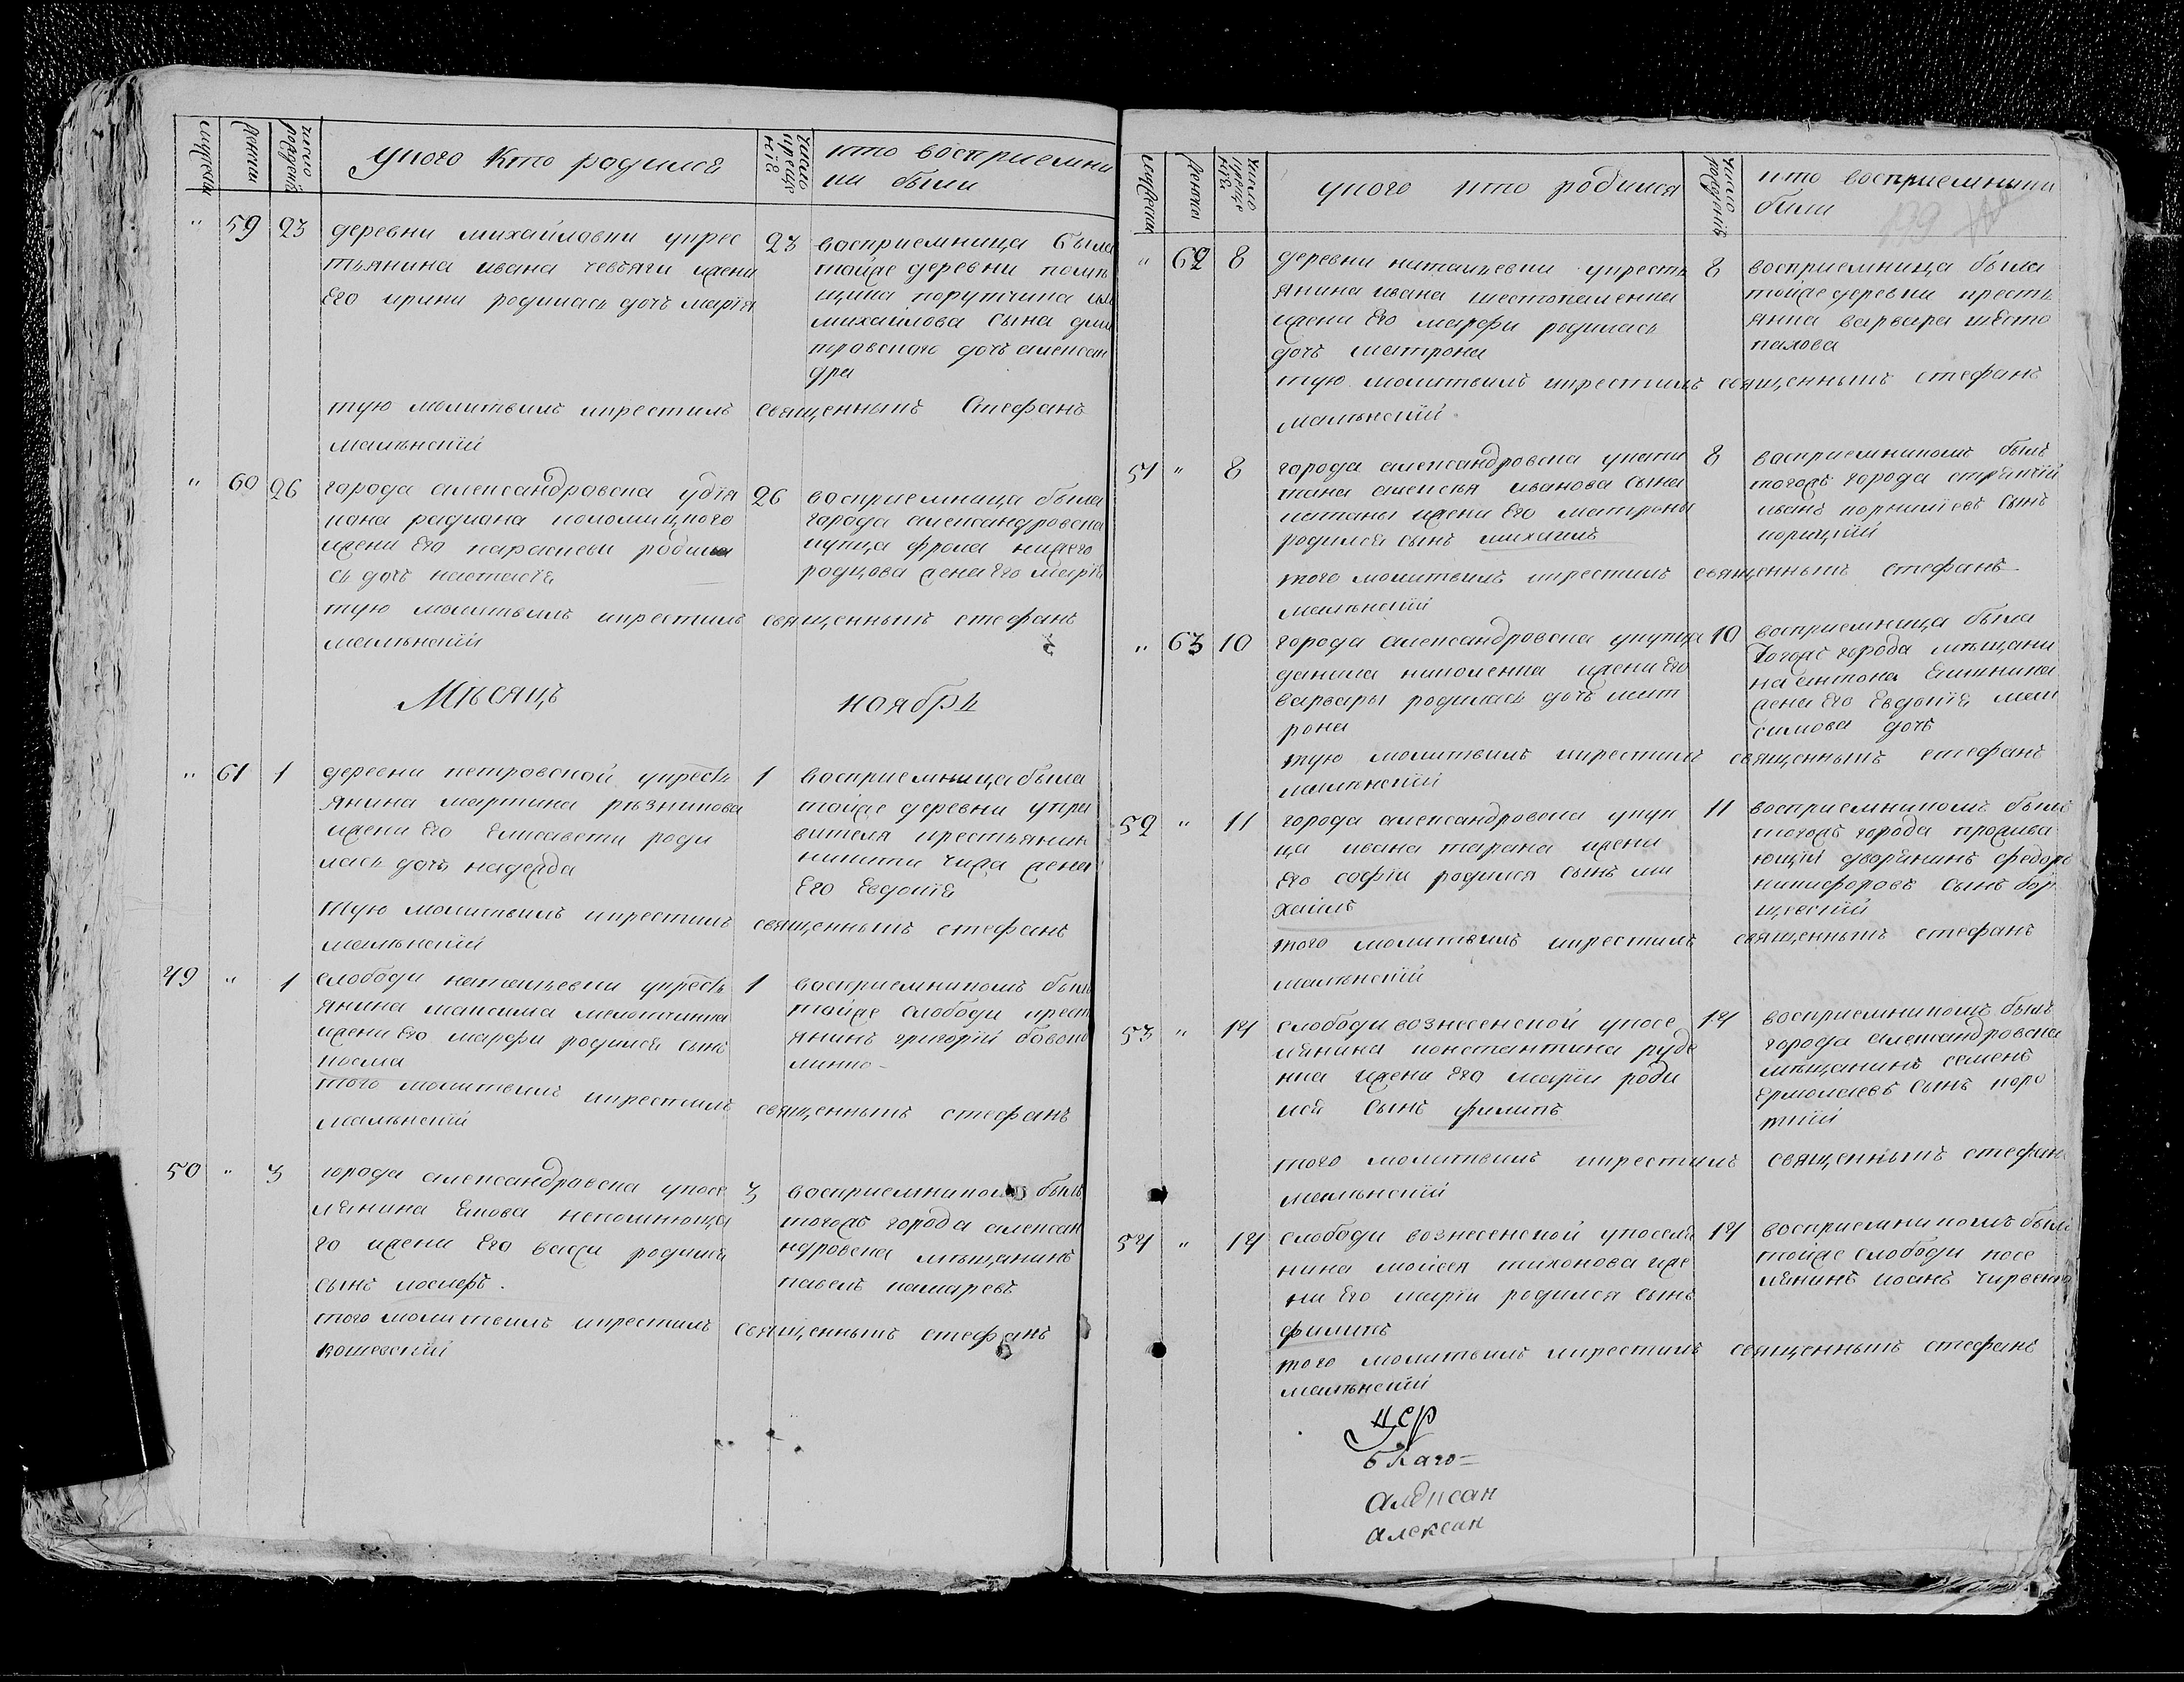 мужеска
женска
число рождений
у кого кто родился
число креще нія
кто восприемни
ки были
" 59 23
деревни михайловки укрес
тьянина ивана чевьяги жени
его ирини родилась дочь марія
23
восприемница была
тойже деревни помѣ
щика порутчика
михайлова сына дми
тровского дочь алексан
дра
тую молитвилъ икрестилъ священникъ стефанъ
мальнскій
" 60 26
города александровска удія
кона радиона коломицкого
жени его параскеви родила
сь дочь настасія
26
восприемница была
города александровска
купца фрола нижего
родцова жена его марія
тую молитвилъ икрестилъ священникъ стефанъ
мальнскій
Мѣсяцъ ноябрь
" 61 1
деревни петровской укресть
янина мартина резникова
жени его елисавети роди
лась дочь надежда
1
восприемница была
тойже деревни упра
вителя крестьянин
никити чижа жена
его евдокія
тую молитвилъ икрестилъ священникъ стефанъ
мальнскій
49 " 1
слободи натальевки укресть
янина максима
жени его марфи родился сынъ
косма
1
восприемникомъ былъ
тойже слободи крест
янинъ григорій
того молитвилъ икрестилъ священникъ стефанъ
мальнскій
50 " 3
города александровска упосе
лянина якова непомнюща
го жени его васси родился
сынъ иосифъ.
3
восприемникомъ былъ
тогожъ города алексан
ндровска мещанинъ
павелъ камаревъ
того молитвилъ икрестилъ священникъ стефанъ
кошевскій
мужеска
женска
число креще нія
у кого кто родился
число рожденій
кто восприемники
были
199
" 62 8
деревни натальевки укресть
янина ивана шестопаленка
жени его марфи родилась
дочь матрона
8
восприемница была
тойже деревни кресть
янка варвара шесто
палова
тую молитвилъ икрестилъ священникъ стефанъ
мальнскій
51 " 8
города александровска укапи
тана алексея иванова сына
жени его матроны
родился сынъ михаилъ
8
восприемникомъ былъ
тогожъ города стряпчій
иванъ корниліевъ сынъ
корицкій
того молитвилъ икрестилъ священникъ стефанъ
мальнскій
" 63 10
города александровска укупца
данила николенка жени его
варвары родилась дочь мат
рона
10
восприемница была
тогожъ города мещани
на антона
жена его евдокія мак
симова дочь
тую молитвилъ икрестилъ священникъ стефанъ
мальнскій
52 " 11
города александровска укуп
ца ивана тарана жени
его софіи родился сынъ ми
хаилъ
11
восприемникомъ былъ
тогожъ города прожива
ющій дворянинъ федоръ
никифоровъ сынъ бор
щевскій
того молитвилъ икрестилъ священникъ стефанъ
мальнскій
53 " 14
слободи вознесенской упосе
лянина константина руде
нка жени его маріи роди
лся сынъ филипъ
14
восприемникомъ былъ
города александровска
мещанинъ семенъ
ермолаевъ сынъ коро
ткій
того молитвилъ икрестилъ священникъ стефанъ
мальнскій
54 " 14
слободи вознесенской упоселя
нина мойсея тихонова же
ни его маріи родился сынъ
филипъ
14
восприемникомъ былъ
тойже слободи посе
лянинъ иоанъ
того молитвилъ икрестилъ священникъ стефанъ
мальнскій
цер
благо=
алексан
алексан